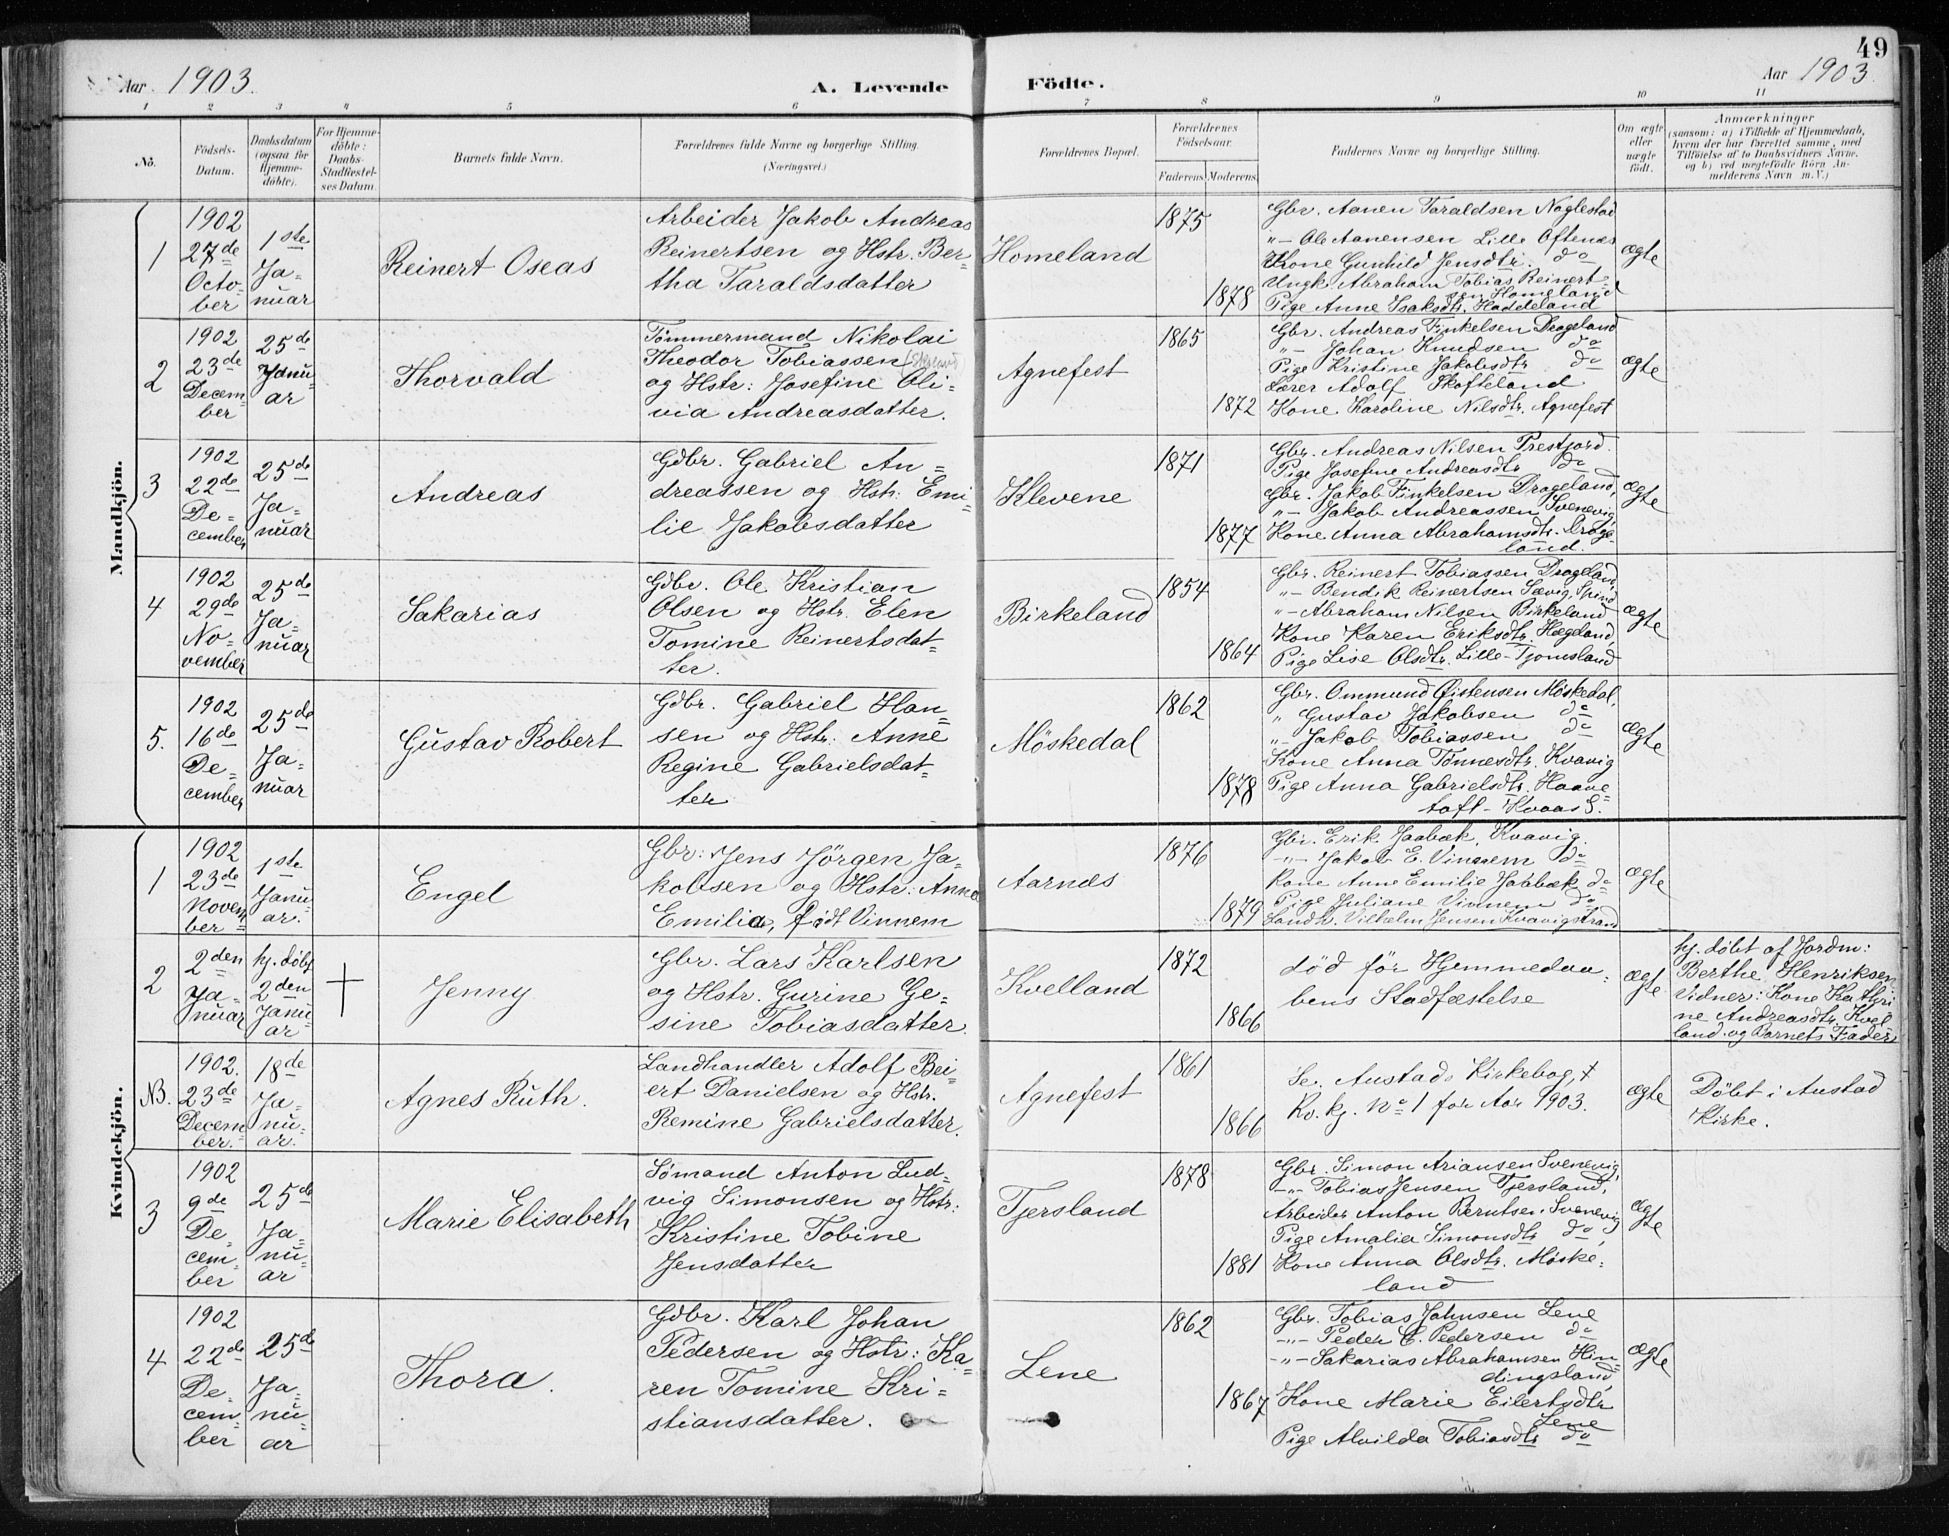 49
Aar 1903.
A. Levende
Födte.
Aar 1903.
1 2 3 4 5 6 7 8 9 10 11
No.
Födsels-Datum.
Daabsdatum (ogsaa for Hjemmedöbte).
For Hjemmedöbte: Daabs-Stadfæstelses Datum.
Barnets fulde Navn.
Forældrenes fulde Navne og borgerlige Stilling.
(Næringsvei.)
Forældrenes Bopæl.
Forældrenes Födselsaar.
Faderens. Moderens.
Faddernes Navne og borgerlige Stilling.
Om ægte eller uægte födt.
Anmærkninger
(saasom: a) i Tilfælde af Hjemmedaab, hvem der har forrettet samme, med Tilföielse af to Daabsvidners Navne, og b) ved uægtefödte Börn Anmelderens Navn m. V.)
Mandkjön.
1
1902
27de
Octo-
ber
1ste
Ja-
nuar
Reinert Oseas
Arbeider Jakob Andreas
Reinertsen og Hstr. Ber-
tha Taraldsdatter
Homeland
1875
1878
Gbr. Aanen Taraldsen Noglestad
"- Ole Aanensen Lille Oftenæs
Kone Gunhild Jensdtr. do
Ungk. Abraham Tobias Reinert-
sen Homeland
Pige Anne Isaksdtr. Haddeland
ægte
2
1902
23de
Decem-
ber
25de
Janu-
ar
Thorvald
Tømmermand Nikolai
Theodor Tobiassen
og Hstr: Josefine Oli-
via Andreasdatter.
Agnefest
1865
1872
Gbr. Andreas Finkelsen Drageland
"- Johan Knudsen do
Pige Kristine Jakobsdtr do
Lærer Adolf Skofteland
Kone Karoline Nilsdtr. Agnefest
ægte
3
1902
22de
De-
cember
25de
Ja-
nuar
Andreas
Gdbr. Gabriel An-
dreassen og Hstr: Emi-
lie Jakobsdatter
Klevene
1871
1877
Gbr. Andreas Nilsen Prestjord.
Pige Josefine Andreasdtr do
Gbr. Jakob Finkelsen Drageland,
"- Jakob Andreassen Svenevig,
Kone Anna Abrahamsdtr. Drage-
land.
ægte
4
1902
29de
No-
vember
25de
Ja-
nuar
Sakarias
Gdbr. Ole Kristian
Olsen og Hstr. Elen
Tomine Reinertsdat-
ter.
Birkeland
1854
1864
Gbr. Reinert Tobiassen Drageland,
"- Bendik Reinertsen Sævig, Spind
"- Abraham Nilsen Birkeland
Kone Karen Eriksdtr. Hægeland,
Pige Lise Olsdtr. Lille-Tjomsland
ægte
5.
1902
16de
De-
cember
25de
Ja-
nuar
Gustav Robert
Gdbr. Gabriel Han-
sen og Hstr: Anne
Regine Gabrielsdat-
ter
Møskedal
1862
1878
Gbr. Ommund Øistensen Møskedal,
" Gustav Jakobsen do
"- Jakob Tobiassen do
Kone Anna Tønnesdtr. Kvavig
Pige Anna Gabrielsdtr. Haave-
toft - Kvaas S.
ægte
Kvindekjön.
1
1902
23de
Novem-
ber
1ste
Janu-
ar.
Engel
Gbr: Jens Jörgen Ja-
kobsen og Hstr: Anna
Emilie, født Vinnem
Aarnæs
1876
1879
Gbr. Erik Jaabæk, Kvavig.
-"- Jakob E. Vinnem do
Kone Anne Emilie Jaabæk do
Pige Juliane Vinnem do
Landh. Vilhelm Jensen Kvavigstrand
ægte
2
2den
Ja-
nuar
hj. döbt
2den
Janu-
ar
Jenny
Gbr. Lars Karlsen
og Hstr. Gurine Ge-
sine Tobiasdatter.
Kvelland
1872
1866
død før Hjemmedaa-
bens Stadfæstelse
ægte
hj. døbt af Jordm:
Berthe Henriksen
Vidner: Kone Kathri
ne Andreasdtr. Kvel
land. og Barnets Fader
NB.
1902.
23de
Decem-
ber.
18de
Ja-
nu-
ar.
Agnes Ruth.
Landhandler Adolf Bei-
ert Danielsen og Hstr.
Remine Gabrielsdatter.
Agnefest
1861
1866
Se. Austads Kirkebog,
Kv. kj. No 1 for Aar 1903.
ægte
Döbt i Austad
Kirke.
3
1902
9de
De-
cem-
ber
25de
Ja-
nu-
ar
Marie Elisabeth
Sømand Anton Lud-
vig Simonsen og Hstr:
Kristine Tobine
Jensdatter
Tjersland
1878
1881
Gbr. Simon Ariansen Svenevig,
-"- Tobias Jensen Tjersland,
Arbeider Anton Berntsen, Svenevig
Pige Amalia Simonsdtr do
Kone Anna Olsdtr. Møske-
land
ægte
4
1902
22de
De-
cem-
ber
25de
Ja-
nu-
ar
Thora.
Gdbr. Karl Johan
Pedersen og Hstr: Ka-
ren Tomine Kri-
stiansdatter.
Lene
1862
1867
Gbr. Tobias Johnsen Lene
-"- Peder C. Pedersen do
-"- Sakarias Abrahamsen Hin-
dingsland,
Kone Marie Eilertsdtr
Lene
Pige Alvilda Tobiasdtr do
ægte